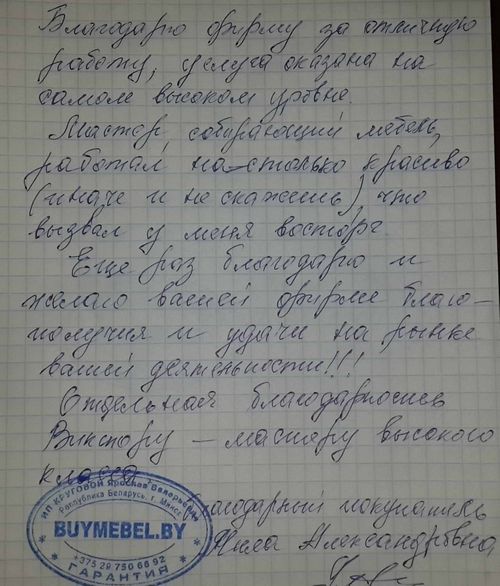 Благодарю фирму за отличную
работу, услуга оказана на
самом высоком уровне.
Мастер, собирающий мебель,
работал на-столько красиво
(иначе и не скажешь), что
вызвал у меня восторг.
Еще раз благодарю и
желаю вашей фирме благо-
получия и удачи на рынке
вашей деятельности!!!
Отдельная благодарность
Виктору – мастеру высокого
класса.
Благодарный покупатель
Нила Александровна
ИП КРУГОВОЙ Ярослав Валерьевич
Республика Беларусь, г. Минск
BUYMEBEL.BY
+375 29 750 66 92
ГАРАНТИЯ